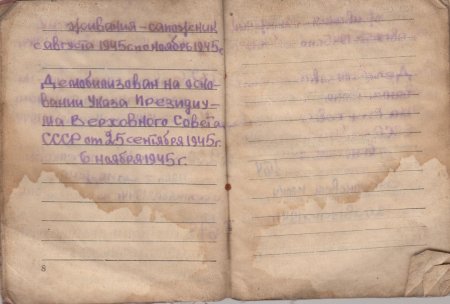 живания – сапожник
с августа 1945 по ноябрь 1945 г.
Демобилизован на осно-
вании Указа Президиу-
ма Верховного Совета
СССР от 25 сентября 1945 г.
6 ноября 1945 г.
8